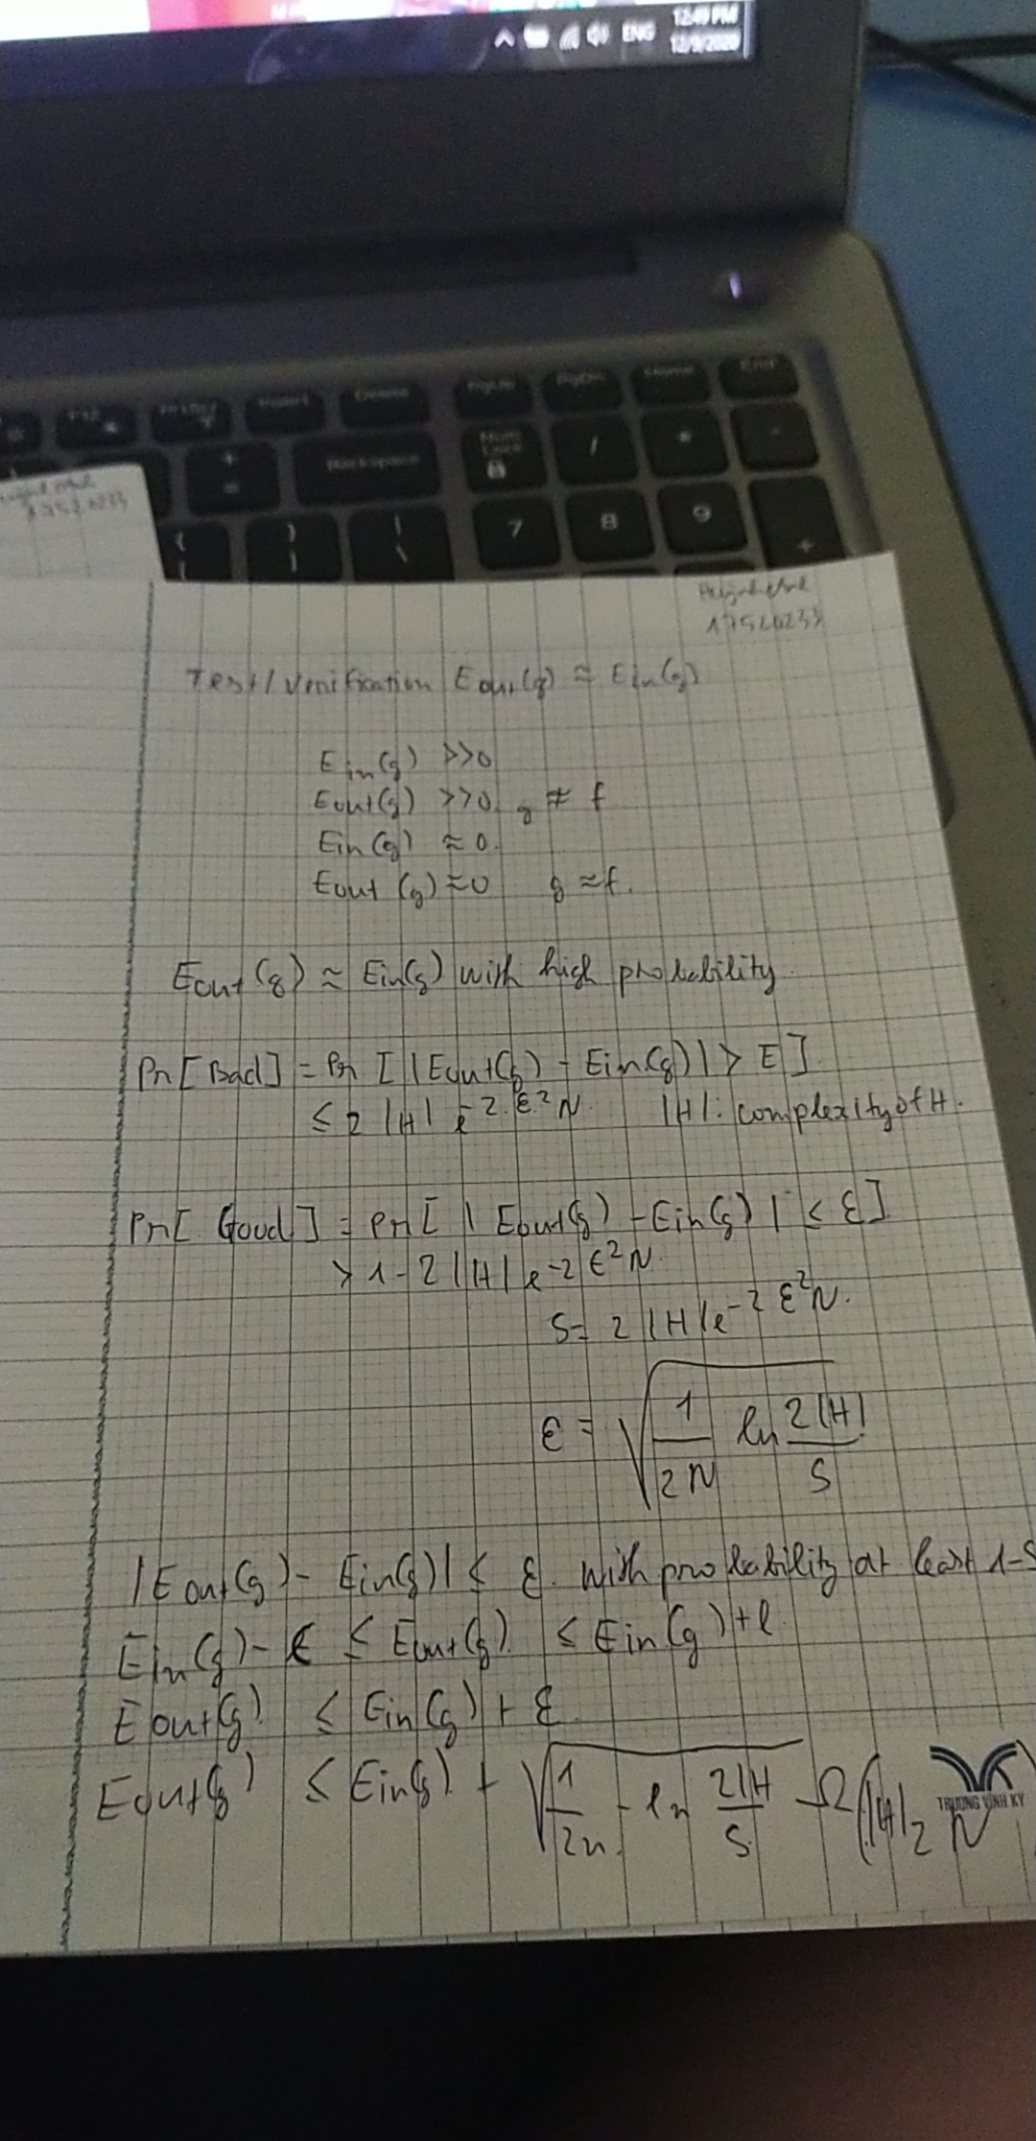 12:49 PM
ENG
12/9/2020
Delete
Backspace
Num
Lock
/
*
-
+
=
7
8
9
+
{
}
|
\
17520233
17520233
Test/Verification Eout(g) ≈ Ein(g)
Ein(g) >>0
Eout(g) >>0. g ≠ f
Ein(g) ≈ 0.
Eout (g) ≈0 g ≈f.
Eout (g) ≈ Ein(g) with high probability.
Pr[Bad] = Pr [|Eout(g) - Ein(g)| > E].
≤ 2 |H| e^-2.ε^2 N. |H|: complexity of H.
Pr[ Good] = Pr[ | Eout(g) - Ein(g) | ≤ ε]
> 1 - 2 |H| e^-2 ε^2 N.
S= 2 |H|e^-2 ε^2 N.
ε = √(1/2N ln 2|H|/S)
|Eout(g) - Ein(g)| ≤ ε. with probability at least 1-S
Ein(g) - ε ≤ Eout(g). ≤ Ein(g) + ε.
Eout(g) ≤ Ein(g) + ε
Eout(g) ≤ Ein(g) + √(1/2n. ln 2|H/S) Ω(|H|, N
TRƯƠNG VĨNH KÝ